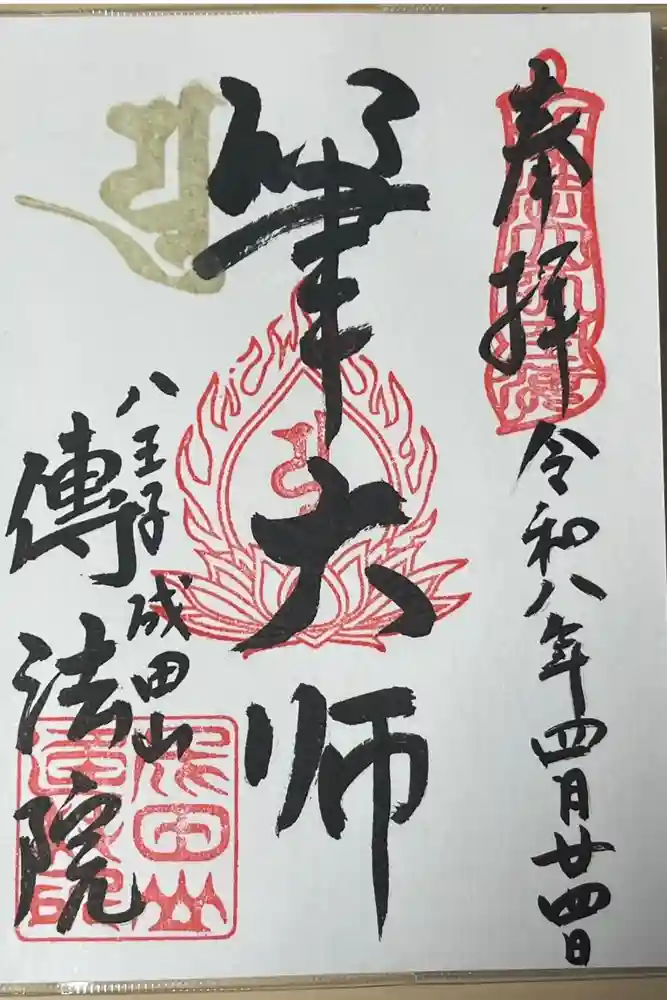 奉拝
令和八年四月廿四日
筆大师
八王子成田山
傳法院